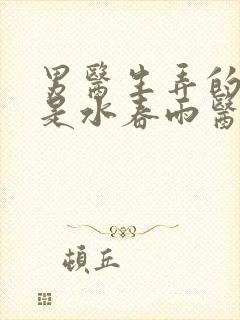 男醫生弄的
是水春雨醫
頓丘